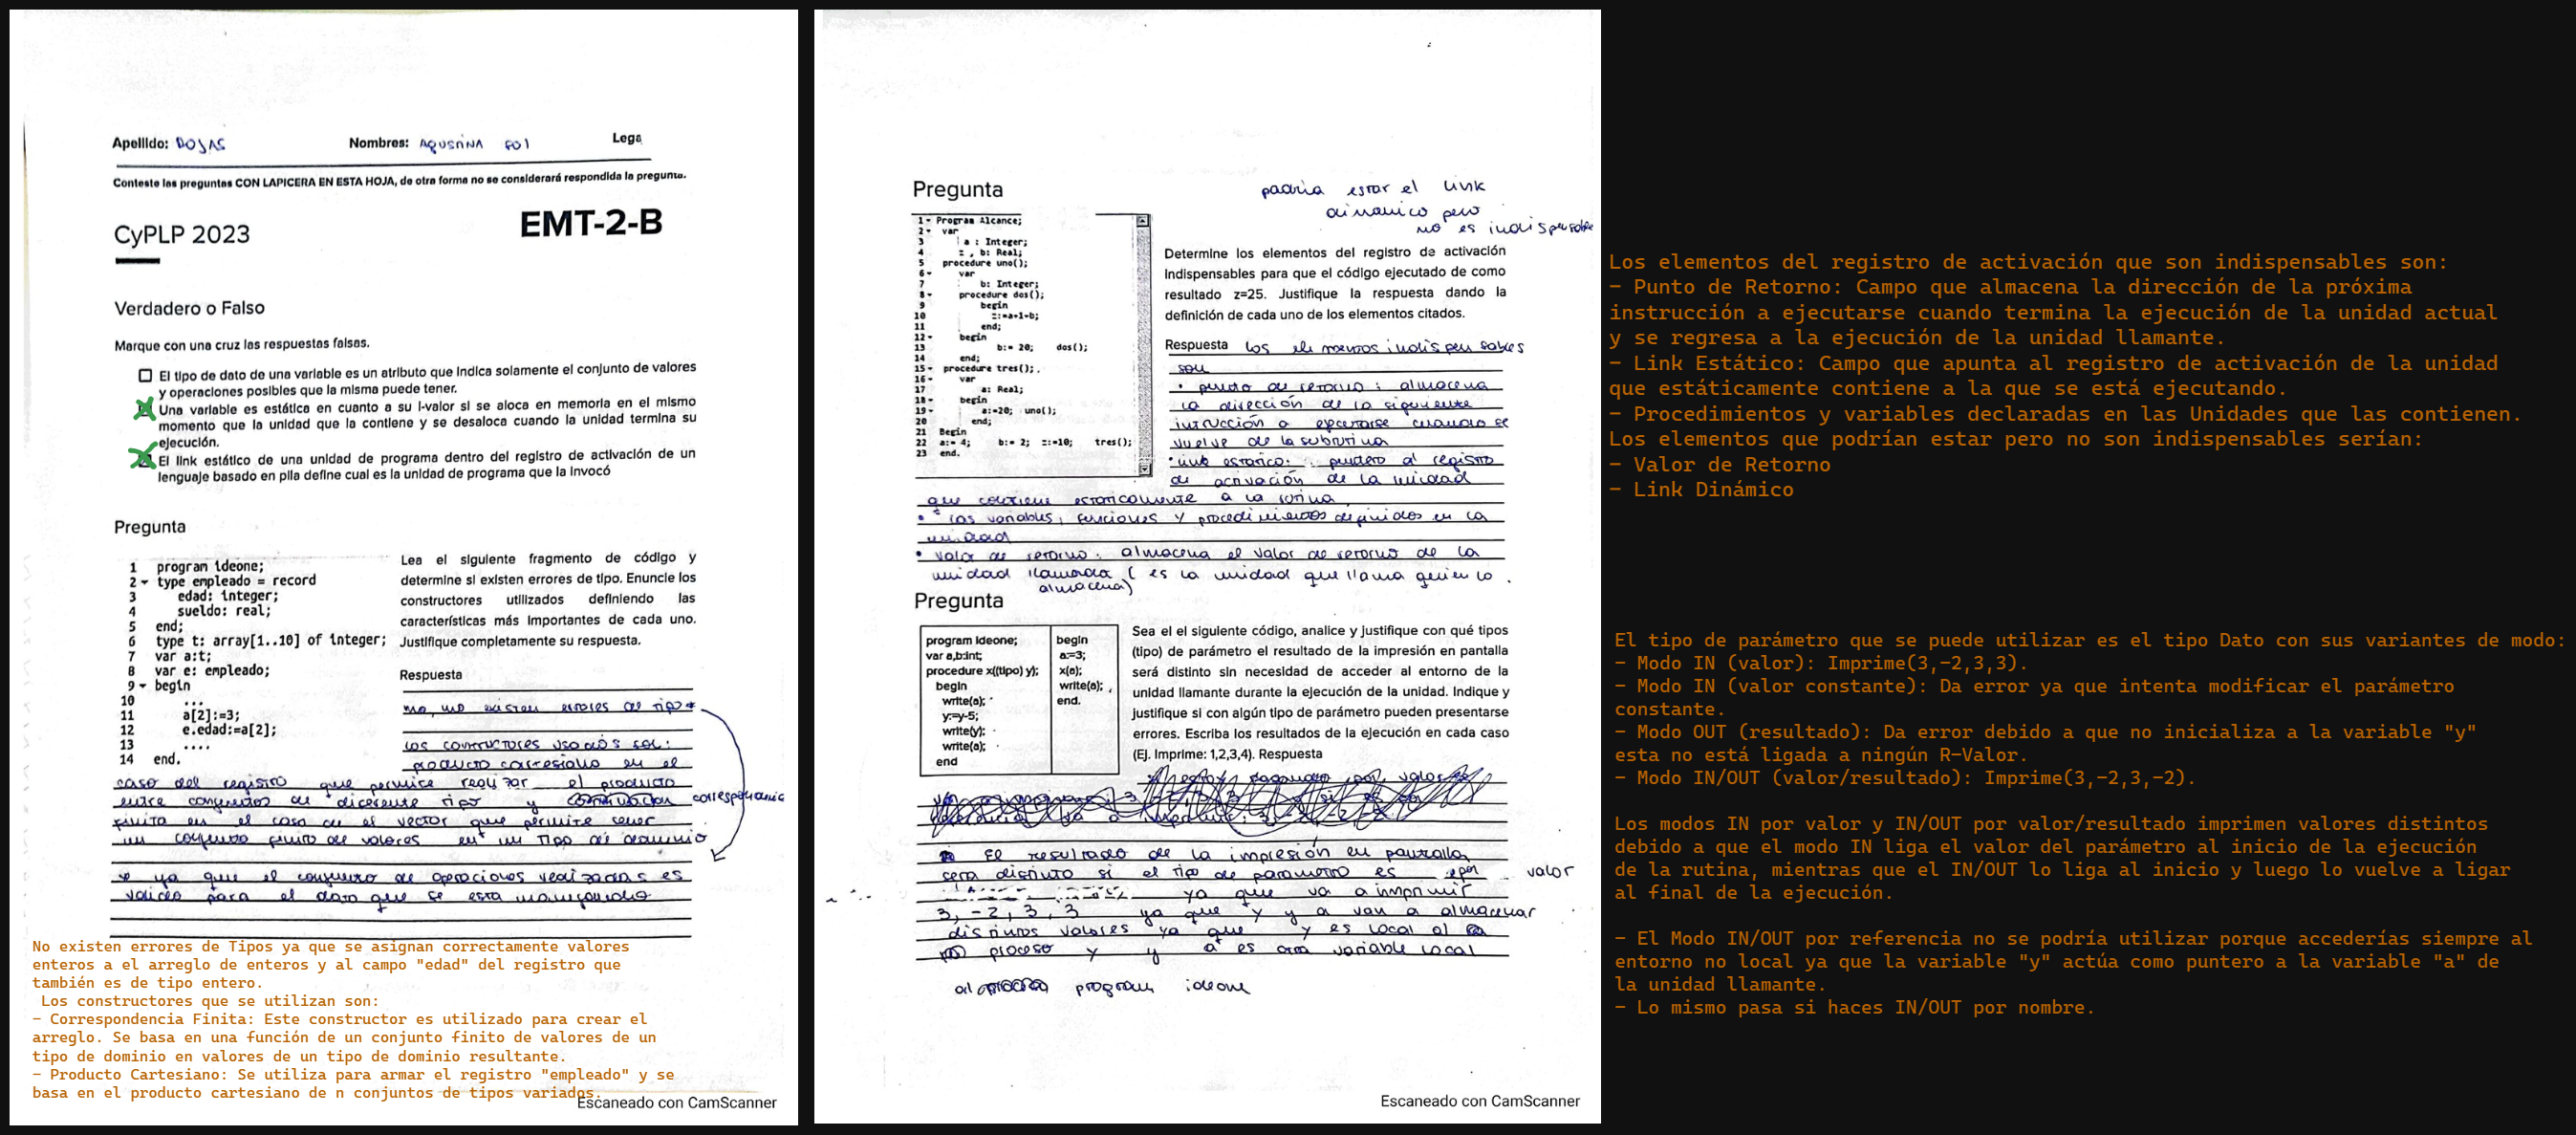 Apellido: ROJAS Nombres: AGUSTINA SOL Lega
Conteste las preguntas CON LAPICERA EN ESTA HOJA, de otra forma no se considerará respondida la pregunta.
CyPLP 2023
EMT-2-B
Verdadero o Falso
Marque con una cruz las respuestas falsas.
El tipo de dato de una variable es un atributo que indica solamente el conjunto de valores
y operaciones posibles que la misma puede tener.
Una variable es estática en cuanto a su l-valor si se aloca en memoria en el mismo
momento que la unidad que la contiene y se desaloca cuando la unidad termina su
ejecución.
El link estático de una unidad de programa dentro del registro de activación de un
lenguaje basado en pila define cual es la unidad de programa que la invocó
Pregunta
1 program ideone;
2 type empleado = record
3 edad: integer;
4 sueldo: real;
5 end;
6 type t: array[1..10] of integer;
7 var a:t;
8 var e: empleado;
9 begin
10 ...
11 a[2]:=3;
12 e.edad:=a[2];
13 ....
14 end.
Lea el siguiente fragmento de código y
determine si existen errores de tipo. Enuncie los
constructores utilizados definiendo las
características más importantes de cada uno.
Justifique completamente su respuesta.
Respuesta
no, no existen errores de tipo *
los constructores usados son:
producto cartesiano en el
caso del registro que permite realizar el producto
entre conjuntos de diferente tipo y correspondencia
finita en el caso de el vector que permite tener
un conjunto finito de valores en un tipo de dominio
* ya que el conjunto de operaciones realizadas es
valido para el dato que se esta manejando
No existen errores de Tipos ya que se asignan correctamente valores
enteros a el arreglo de enteros y al campo "edad" del registro que
también es de tipo entero.
Los constructores que se utilizan son:
- Correspondencia Finita: Este constructor es utilizado para crear el
arreglo. Se basa en una función de un conjunto finito de valores de un
tipo de dominio en valores de un tipo de dominio resultante.
- Producto Cartesiano: Se utiliza para armar el registro "empleado" y se
basa en el producto cartesiano de n conjuntos de tipos variados.
Escaneado con CamScanner
Pregunta
podria estar el link
dinamico pero
no es indispensable
1 Program Alcance;
2 var
3 a : Integer;
4 z , b: Real;
5 procedure uno();
6 var
7 b: Integer;
8 procedure dos();
9 begin
10 z:=a+1+b;
11 end;
12 begin
13 b:= 20; dos();
14 end;
15 procedure tres();
16 var
17 a: Real;
18 begin
19 a:=20; uno();
20 end;
21 Begin
22 a:= 4; b:= 2; z:=10; tres();
23 end.
Determine los elementos del registro de activación
indispensables para que el código ejecutado de como
resultado z=25. Justifique la respuesta dando la
definición de cada uno de los elementos citados.
Respuesta los elementos indispensables
son
• punto de retorno: almacena
la dirección de la siguiente
intrucción a ejecutarse cuando se
vuelve de la subrutina
• link estatico: puntero al registro
de activación de la unidad
que contiene estaticamente a la rutina
• las variables, funciones y procedimientos definidos en la
unidad
• valor de retorno: almacena el valor de retorno de la
unidad llamada ( es la unidad que llama quien lo
almacena)
Pregunta
program ideone;
var a,b:int;
procedure x((tipo) y);
begin
write(a);
y:=y-5;
write(y);
write(a);
end
begin
a:=3;
x(a);
write(a);
end.
Sea el el siguiente código, analice y justifique con qué tipos
(tipo) de parámetro el resultado de la impresión en pantalla
será distinto sin necesidad de acceder al entorno de la
unidad llamante durante la ejecución de la unidad. Indique y
justifique si con algún tipo de parámetro pueden presentarse
errores. Escriba los resultados de la ejecución en cada caso
(Ej. Imprime: 1,2,3,4). Respuesta
El resultado de la impresión en pantalla
sera distinto si el tipo de parametro es por valor
ya que va a imprimir
3, -2, 3, 3 ya que y y a van a almacenar
distintos valores ya que y es local al
proceso x y a es otra variable local
al program ideone
Escaneado con CamScanner
Los elementos del registro de activación que son indispensables son:
- Punto de Retorno: Campo que almacena la dirección de la próxima
instrucción a ejecutarse cuando termina la ejecución de la unidad actual
y se regresa a la ejecución de la unidad llamante.
- Link Estático: Campo que apunta al registro de activación de la unidad
que estáticamente contiene a la que se está ejecutando.
- Procedimientos y variables declaradas en las Unidades que las contienen.
Los elementos que podrían estar pero no son indispensables serían:
- Valor de Retorno
- Link Dinámico
El tipo de parámetro que se puede utilizar es el tipo Dato con sus variantes de modo:
- Modo IN (valor): Imprime(3,-2,3,3).
- Modo IN (valor constante): Da error ya que intenta modificar el parámetro
constante.
- Modo OUT (resultado): Da error debido a que no inicializa a la variable "y"
esta no está ligada a ningún R-Valor.
- Modo IN/OUT (valor/resultado): Imprime(3,-2,3,-2).
Los modos IN por valor y IN/OUT por valor/resultado imprimen valores distintos
debido a que el modo IN liga el valor del parámetro al inicio de la ejecución
de la rutina, mientras que el IN/OUT lo liga al inicio y luego lo vuelve a ligar
al final de la ejecución.
- El Modo IN/OUT por referencia no se podría utilizar porque accederías siempre al
entorno no local ya que la variable "y" actúa como puntero a la variable "a" de
la unidad llamante.
- Lo mismo pasa si haces IN/OUT por nombre.